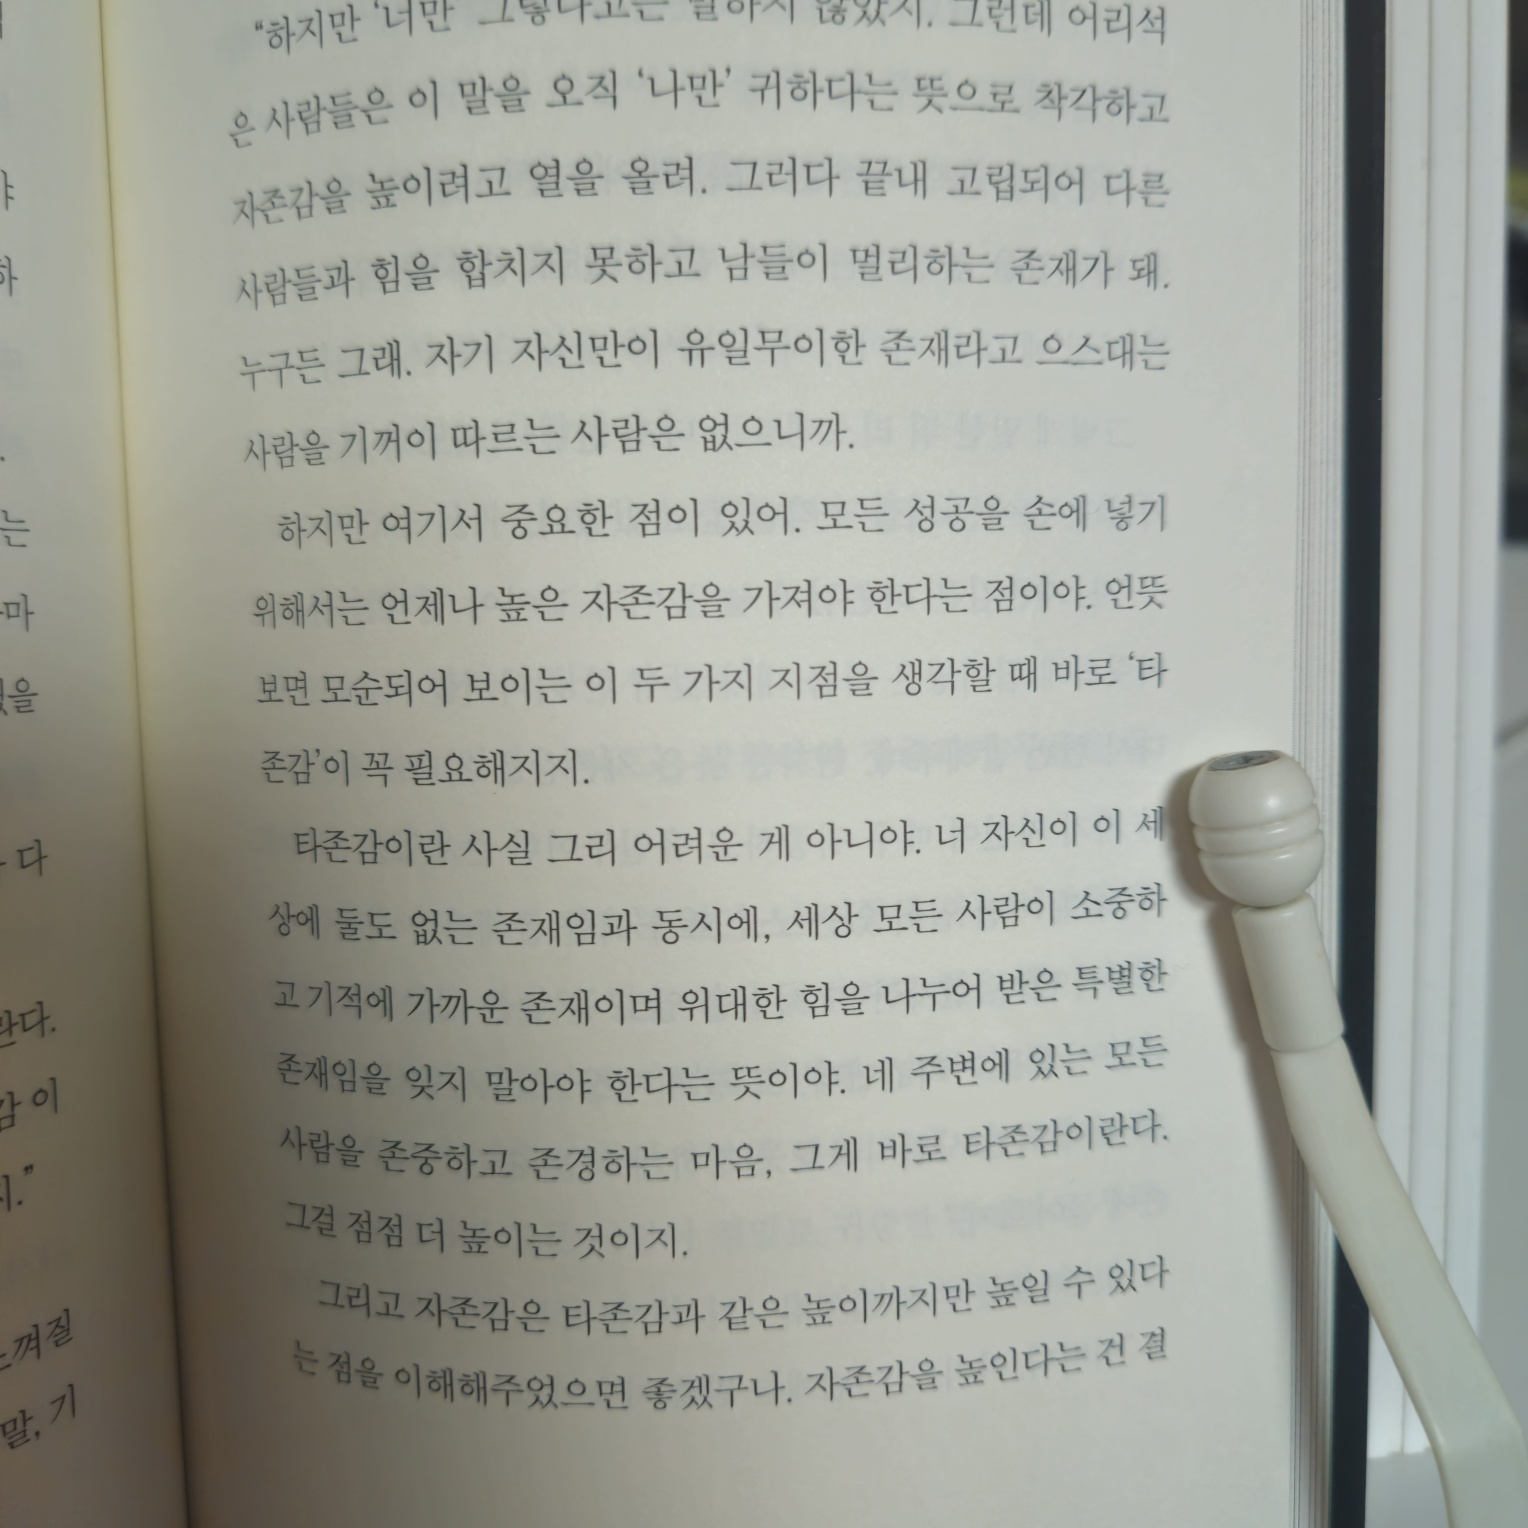 “하지만 ‘너만’ 그렇다고는 말하지 않았지. 그런데 어리석
은 사람들은 이 말을 오직 ‘나만’ 귀하다는 뜻으로 착각하고
자존감을 높이려고 열을 올려. 그러다 끝내 고립되어 다른
사람들과 힘을 합치지 못하고 남들이 멀리하는 존재가 돼.
누구든 그래. 자기 자신만이 유일무이한 존재라고 으스대는
사람을 기꺼이 따르는 사람은 없으니까.
하지만 여기서 중요한 점이 있어. 모든 성공을 손에 넣기
위해서는 언제나 높은 자존감을 가져야 한다는 점이야. 언뜻
보면 모순되어 보이는 이 두 가지 지점을 생각할 때 바로 ‘타
존감’이 꼭 필요해지지.
타존감이란 사실 그리 어려운 게 아니야. 너 자신이 이 세
상에 둘도 없는 존재임과 동시에, 세상 모든 사람이 소중하
고 기적에 가까운 존재이며 위대한 힘을 나누어 받은 특별한
존재임을 잊지 말아야 한다는 뜻이야. 네 주변에 있는 모든
사람을 존중하고 존경하는 마음, 그게 바로 타존감이란다.
그걸 점점 더 높이는 것이지.
그리고 자존감은 타존감과 같은 높이까지만 높일 수 있다
는 점을 이해해주었으면 좋겠구나. 자존감을 높인다는 건 결